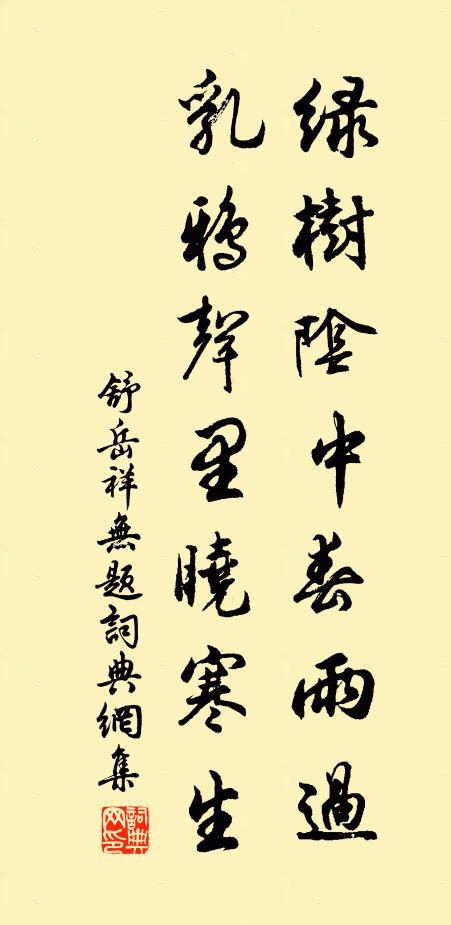 綠樹陰中春雨過
乳鴉聲里曉寒生
舒岳祥無题詞典網集
詞典网印